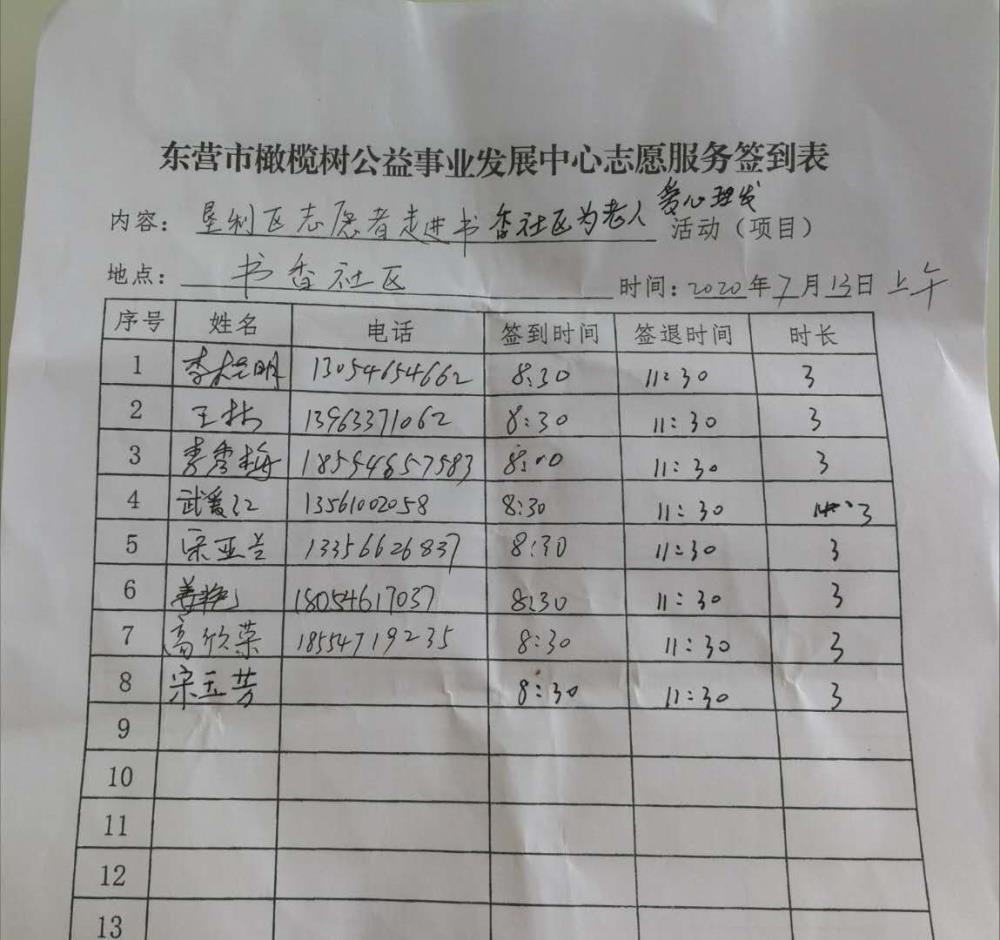 东营市橄榄树公益事业发展中心志愿服务签到表
爱心理发
内容：垦利区志愿者走进书香社区为老人 活动（项目）
地点：书香社区 时间：2020年7月13日上午
序号 姓名 电话 签到时间 签退时间 时长
1 13054654662 8:30 11:30 3
2 王林 13963371062 8:30 11:30 3
3 李秀梅 18554657583 11:30 3
4 武爱江 13561002058 8:30 11:30 3
5 宋亚兰 13356626837 8:30 11:30 3
6 18054617037 8:30 11:30 3
7 高欣荣 18554719235 8:30 11:30 3
8 宋玉芳 8:30 11:30 3
9
10
11
12
13